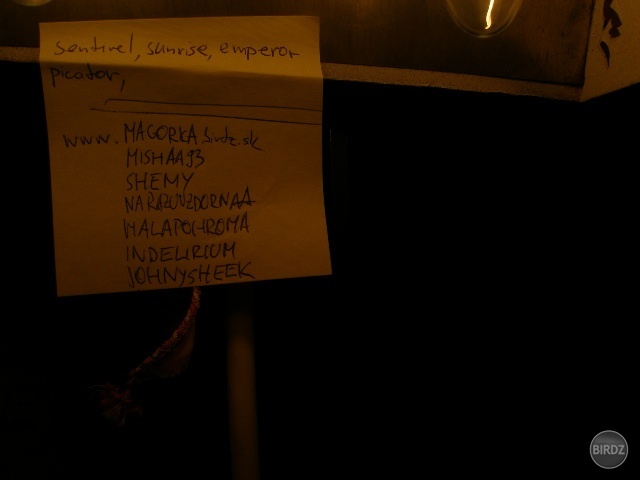 sentinel, sunrise, emperor
picator,
www.MAGORKA.birdz.sk
MISHAA93
SHEMY
NARRUVZDORNAA
MALAPOCHROMA
INDELIRIUM
JOHNYSHEEK
BIRDZ